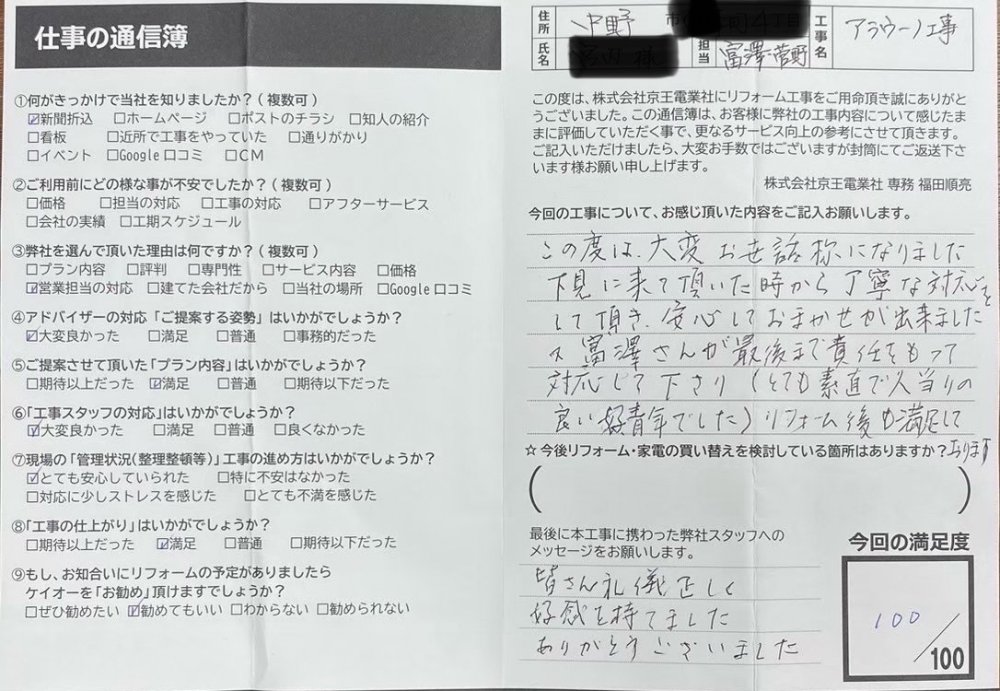 仕事の通信簿
①何がきっかけで当社を知りましたか?(複数可)
☑新聞折込 □ホームページ □ポストのチラシ □知人の紹介
□看板 □近所で工事をやっていた □通りがかり
□イベント □Google口コミ □CM
②ご利用前にどの様な事が不安でしたか?(複数可)
□価格 □担当の対応 □工事の対応 □アフターサービス
□会社の実績 □工期スケジュール
③弊社を選んで頂いた理由は何ですか?(複数可)
□プラン内容 □評判 □専門性 □サービス内容 □価格
☑営業担当の対応 □建てた会社だから □当社の場所 □Google口コミ
④アドバイザーの対応「ご提案する姿勢」はいかがでしょうか?
☑大変良かった □満足 □普通 □事務的だった
⑤ご提案させて頂いた「プラン内容」はいかがでしょうか?
□期待以上だった ☑満足 □普通 □期待以下だった
⑥「工事スタッフの対応」はいかがでしょうか?
☑大変良かった □満足 □普通 □良くなかった
⑦現場の「管理状況(整理整頓等)」工事の進め方はいかがでしょうか?
☑とても安心していられた □特に不安はなかった
□対応に少しストレスを感じた □とても不満を感じた
⑧「工事の仕上がり」はいかがでしょうか?
□期待以上だった ☑満足 □普通 □期待以下だった
⑨もし、お知合いにリフォームの予定がありましたら
ケイオーを「お勧め」頂けますでしょうか?
□ぜひ勧めたい ☑勧めてもいい □わからない □勧められない
住所 中野 市 4丁目
氏名 様 担当 富澤・菅野
工事名 アラウーノ工事
この度は、株式会社京王電業社にリフォーム工事をご用命頂き誠にありがと
うございました。この通信簿は、お客様に弊社の工事内容について感じたま
まに評価していただく事で、更なるサービス向上の参考にさせて頂きます。
ご記入いただけましたら、大変お手数ではございますが封筒にてご返送下さ
います様お願い申し上げます。
株式会社京王電業社 専務 福田順亮
今回の工事について、お感じ頂いた内容をご記入お願いします。
この度は、大変お世話様になりました
下見に来て頂いた時から丁寧な対応を
して頂き、安心しておまかせが出来ました
又富澤さんが最後まで責任をもって
対応して下さり(とても素直で人当りの
良い好青年でした)リフォーム後も満足して
おります
☆今後リフォーム・家電の買い替えを検討している箇所はありますか?
( )
最後に本工事に携わった弊社スタッフへの
メッセージをお願いします。
皆さん礼儀正しく
好感を持てました
ありがとうございました
今回の満足度
100/100